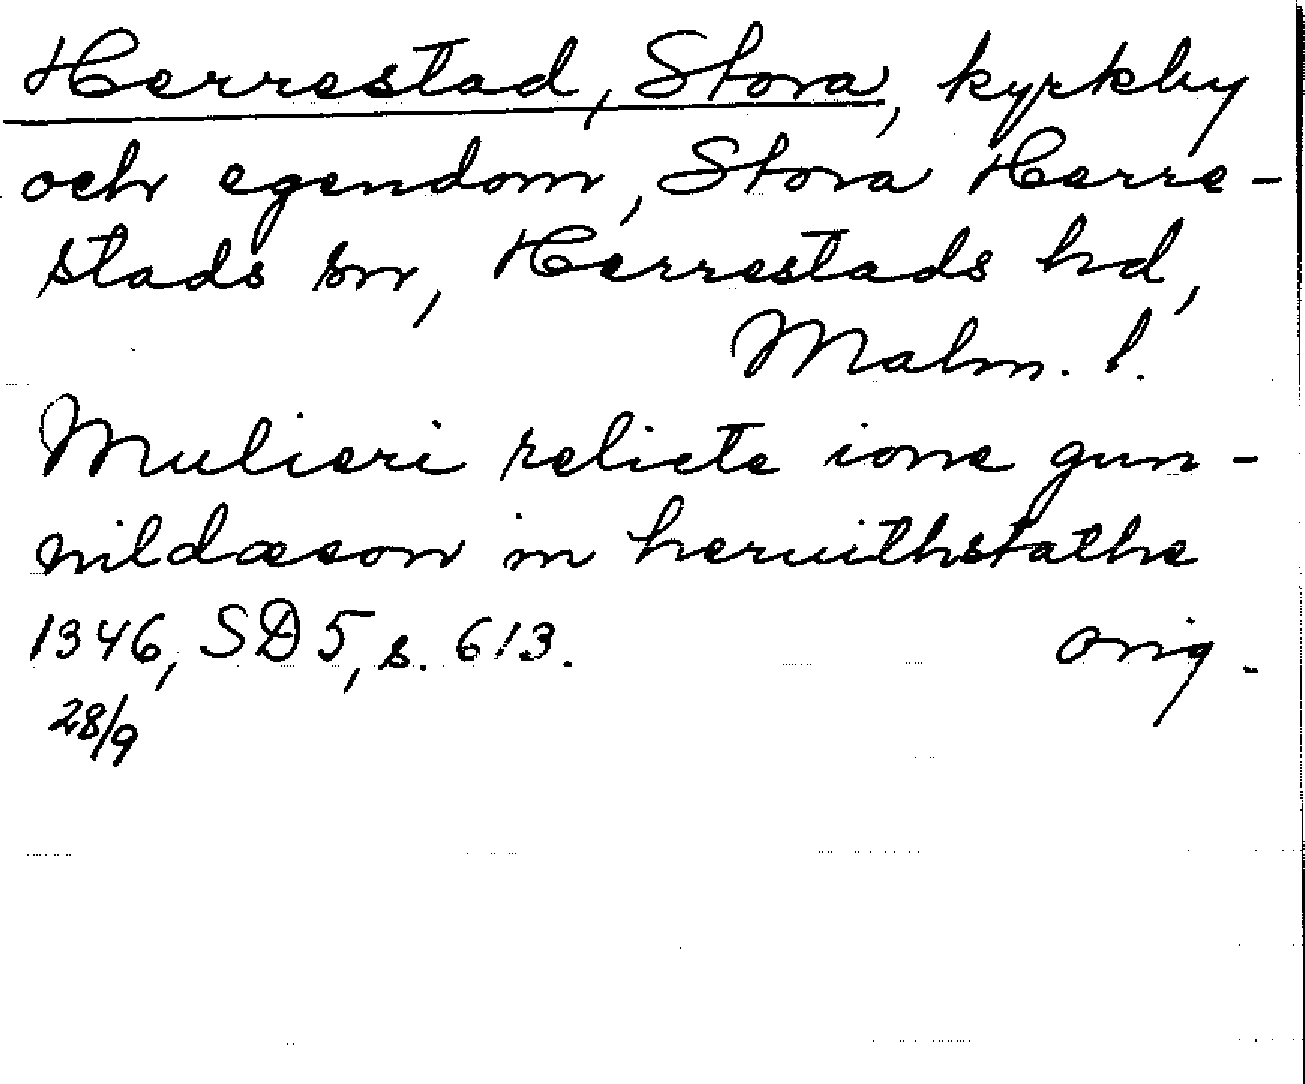 Herrestad, Stora, kyrkby
och egendom, Stora Herre-
stads sn, Herrestads hd,
Malm. l.
Mulieri relicte ione gun-
nildæson in heruithstathe
1346, SD 5, s. 613. orig.
28/9